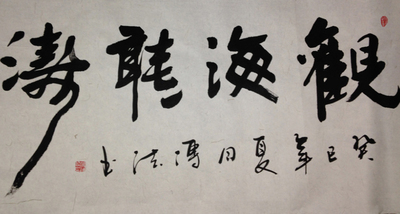 觀海聽濤
癸巳年夏月馮法書